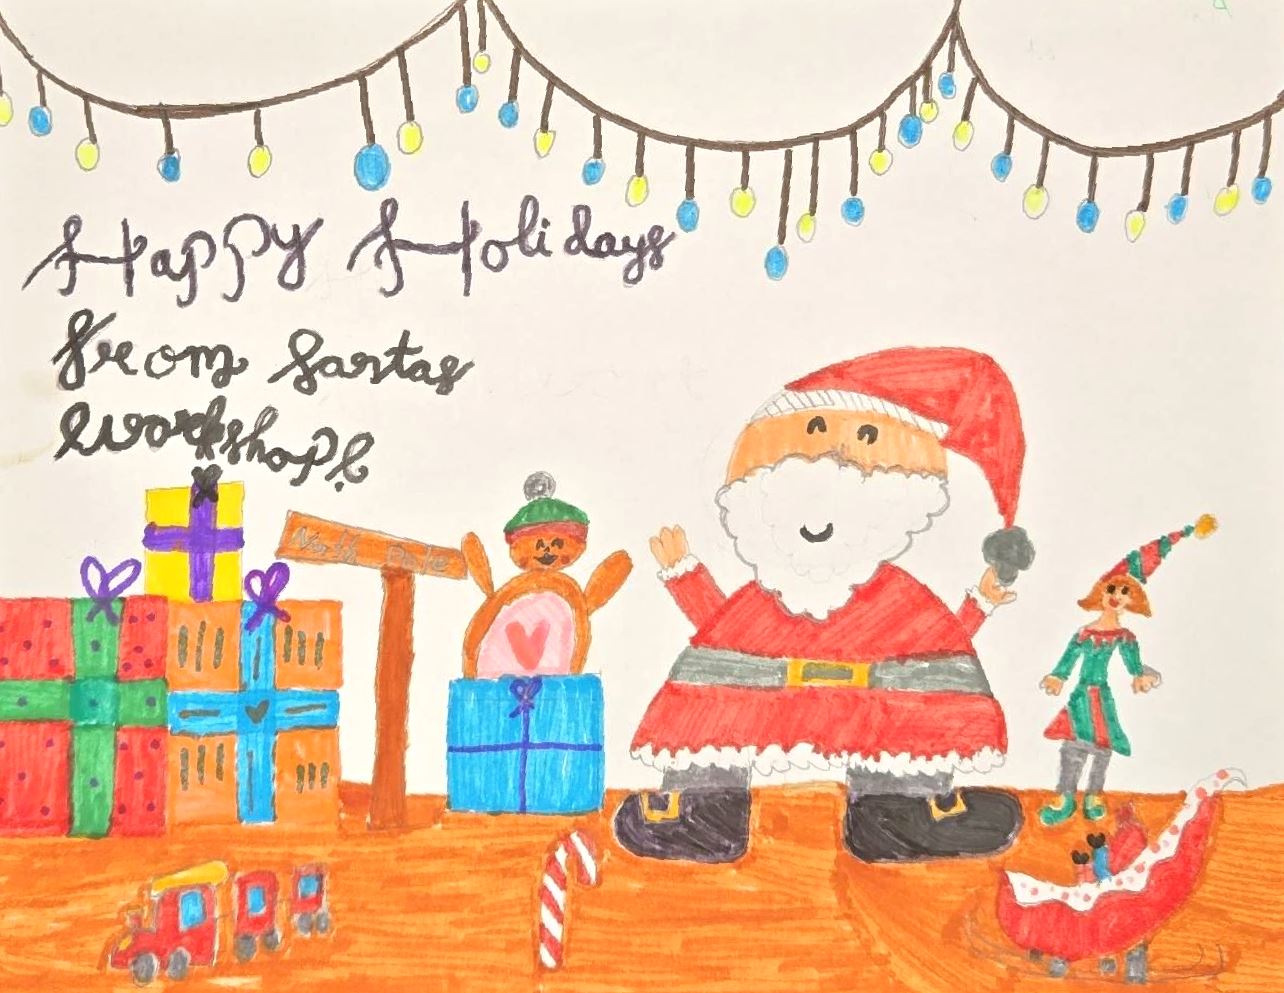 Happy Holidays
from Santas
Workshop!
North Pole